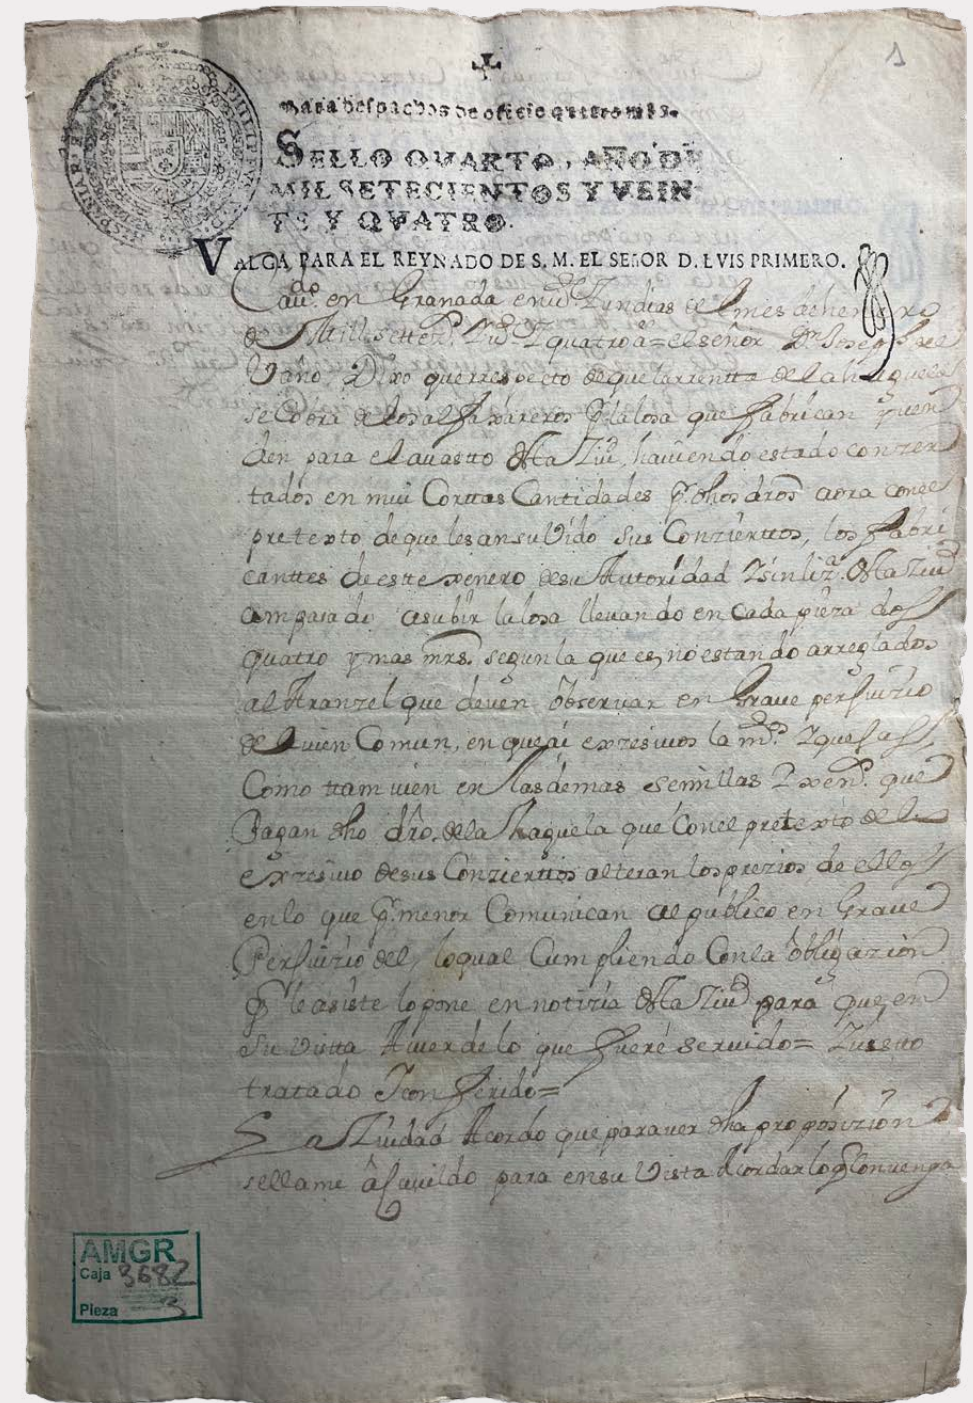 1
Para despachos de oficio quatro mrs.
SELLO QVARTO, AÑO DE
MIL SETECIENTOS Y VEIN
TE Y QVATRO.
VALGA PARA EL REYNADO DE S. M. EL SEñOR D. LVIS PRIMERO.
Cavdo. en Granada en dias del mes de henero
de Mill settez. quatro as = el señor Dn. Joseph del
Vaño, Dixo que rrespecto de que la rrentta de la haguela
se cobra de los alfaxareros pr. la losa que fabrican y uen
den para el auastto desta Ziud, hauiendo estado conzer
tados en mui Corttas Cantidades pr. dhos dros aora con el
pretexto de que les an suvido sus Conzierttos, los fabri
canttes de este xenero de su Autoridad Y sin liza. desta Ziud
an pasado a subir la losa lleuando en cada pieza dos
quatro y mas mrs. segun la que es, no estando arreglados
al Aranzel que deuen obseruar en Graue perjuizio
del uien Comun, en que ai exzesiuos la Y quejas,
Como ttamuien en las demas semillas Y xens. que
Pagan dho dro. de la haguela que Con el pretexto de lo
exzesiuo de sus Conzierttos alteran los prezios de ellos
en lo que pr. menor Comunican al publico en Graue
Perjuizio del, lo qual Cumpliendo Con la obligazion
q le asiste lo pone en notizia desta Ziud para que en
su vistta Acuerde lo que fuere seruido = Y uistto
tratado Y conferido =
La Ziudad Acordo que para uer dha proposizion
se llame a Cauildo para en su Vista Acordar lo q Conuenga
AMGR
Caja 3682
Pieza 3